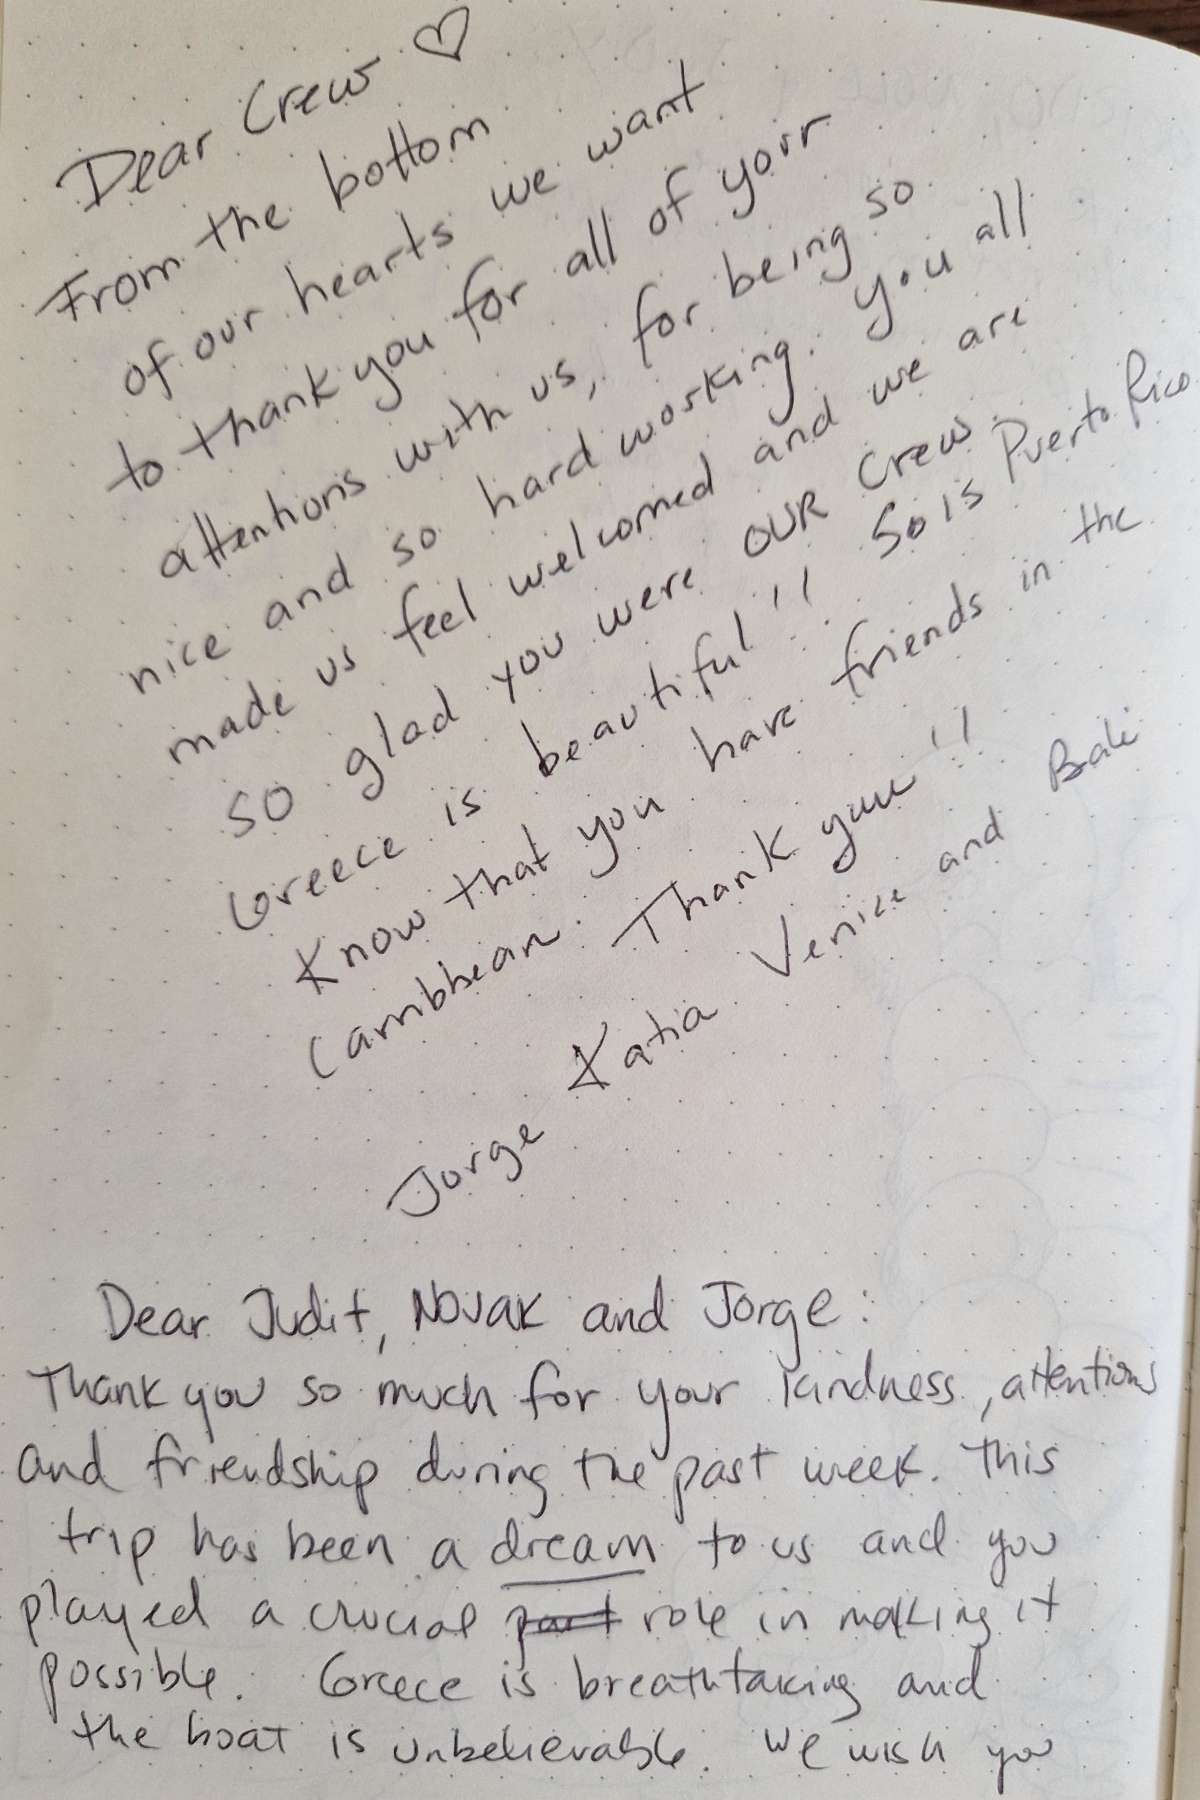 Dear Crew ♡
From the bottom
of our hearts we want
to thank you for all of your
attentions with us, for being so
nice and so hard working. you all
made us feel welcomed and we are
so glad you were OUR Crew.
Greece is beautiful!! So is Puerto Rico
Know that you have friends in the
Carribbean. Thank yuu!!
Jorge Katia Venice and Bali
Dear Judit, Novak and Jorge:
Thank you so much for your kindness, attentions
and friendship during the past week. This
trip has been a dream to us and you
played a crucial part role in making it
possible. Greece is breathtaking and
the boat is unbelievable. We wish you